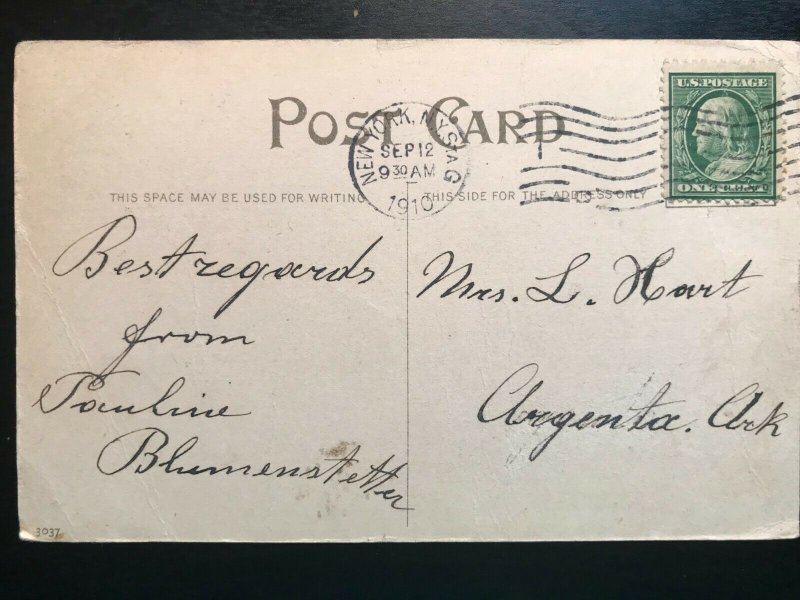 POST CARD
NEW YORK, N.Y. STA G
SEP 12
9 30 AM
1910
U.S. POSTAGE
ONE CENT
THIS SPACE MAY BE USED FOR WRITING
THIS SIDE FOR THE ADDRESS ONLY
Best regards
from
Pauline
Blumenstetter
Mrs. L. Hart
Argenta. Ark
3037